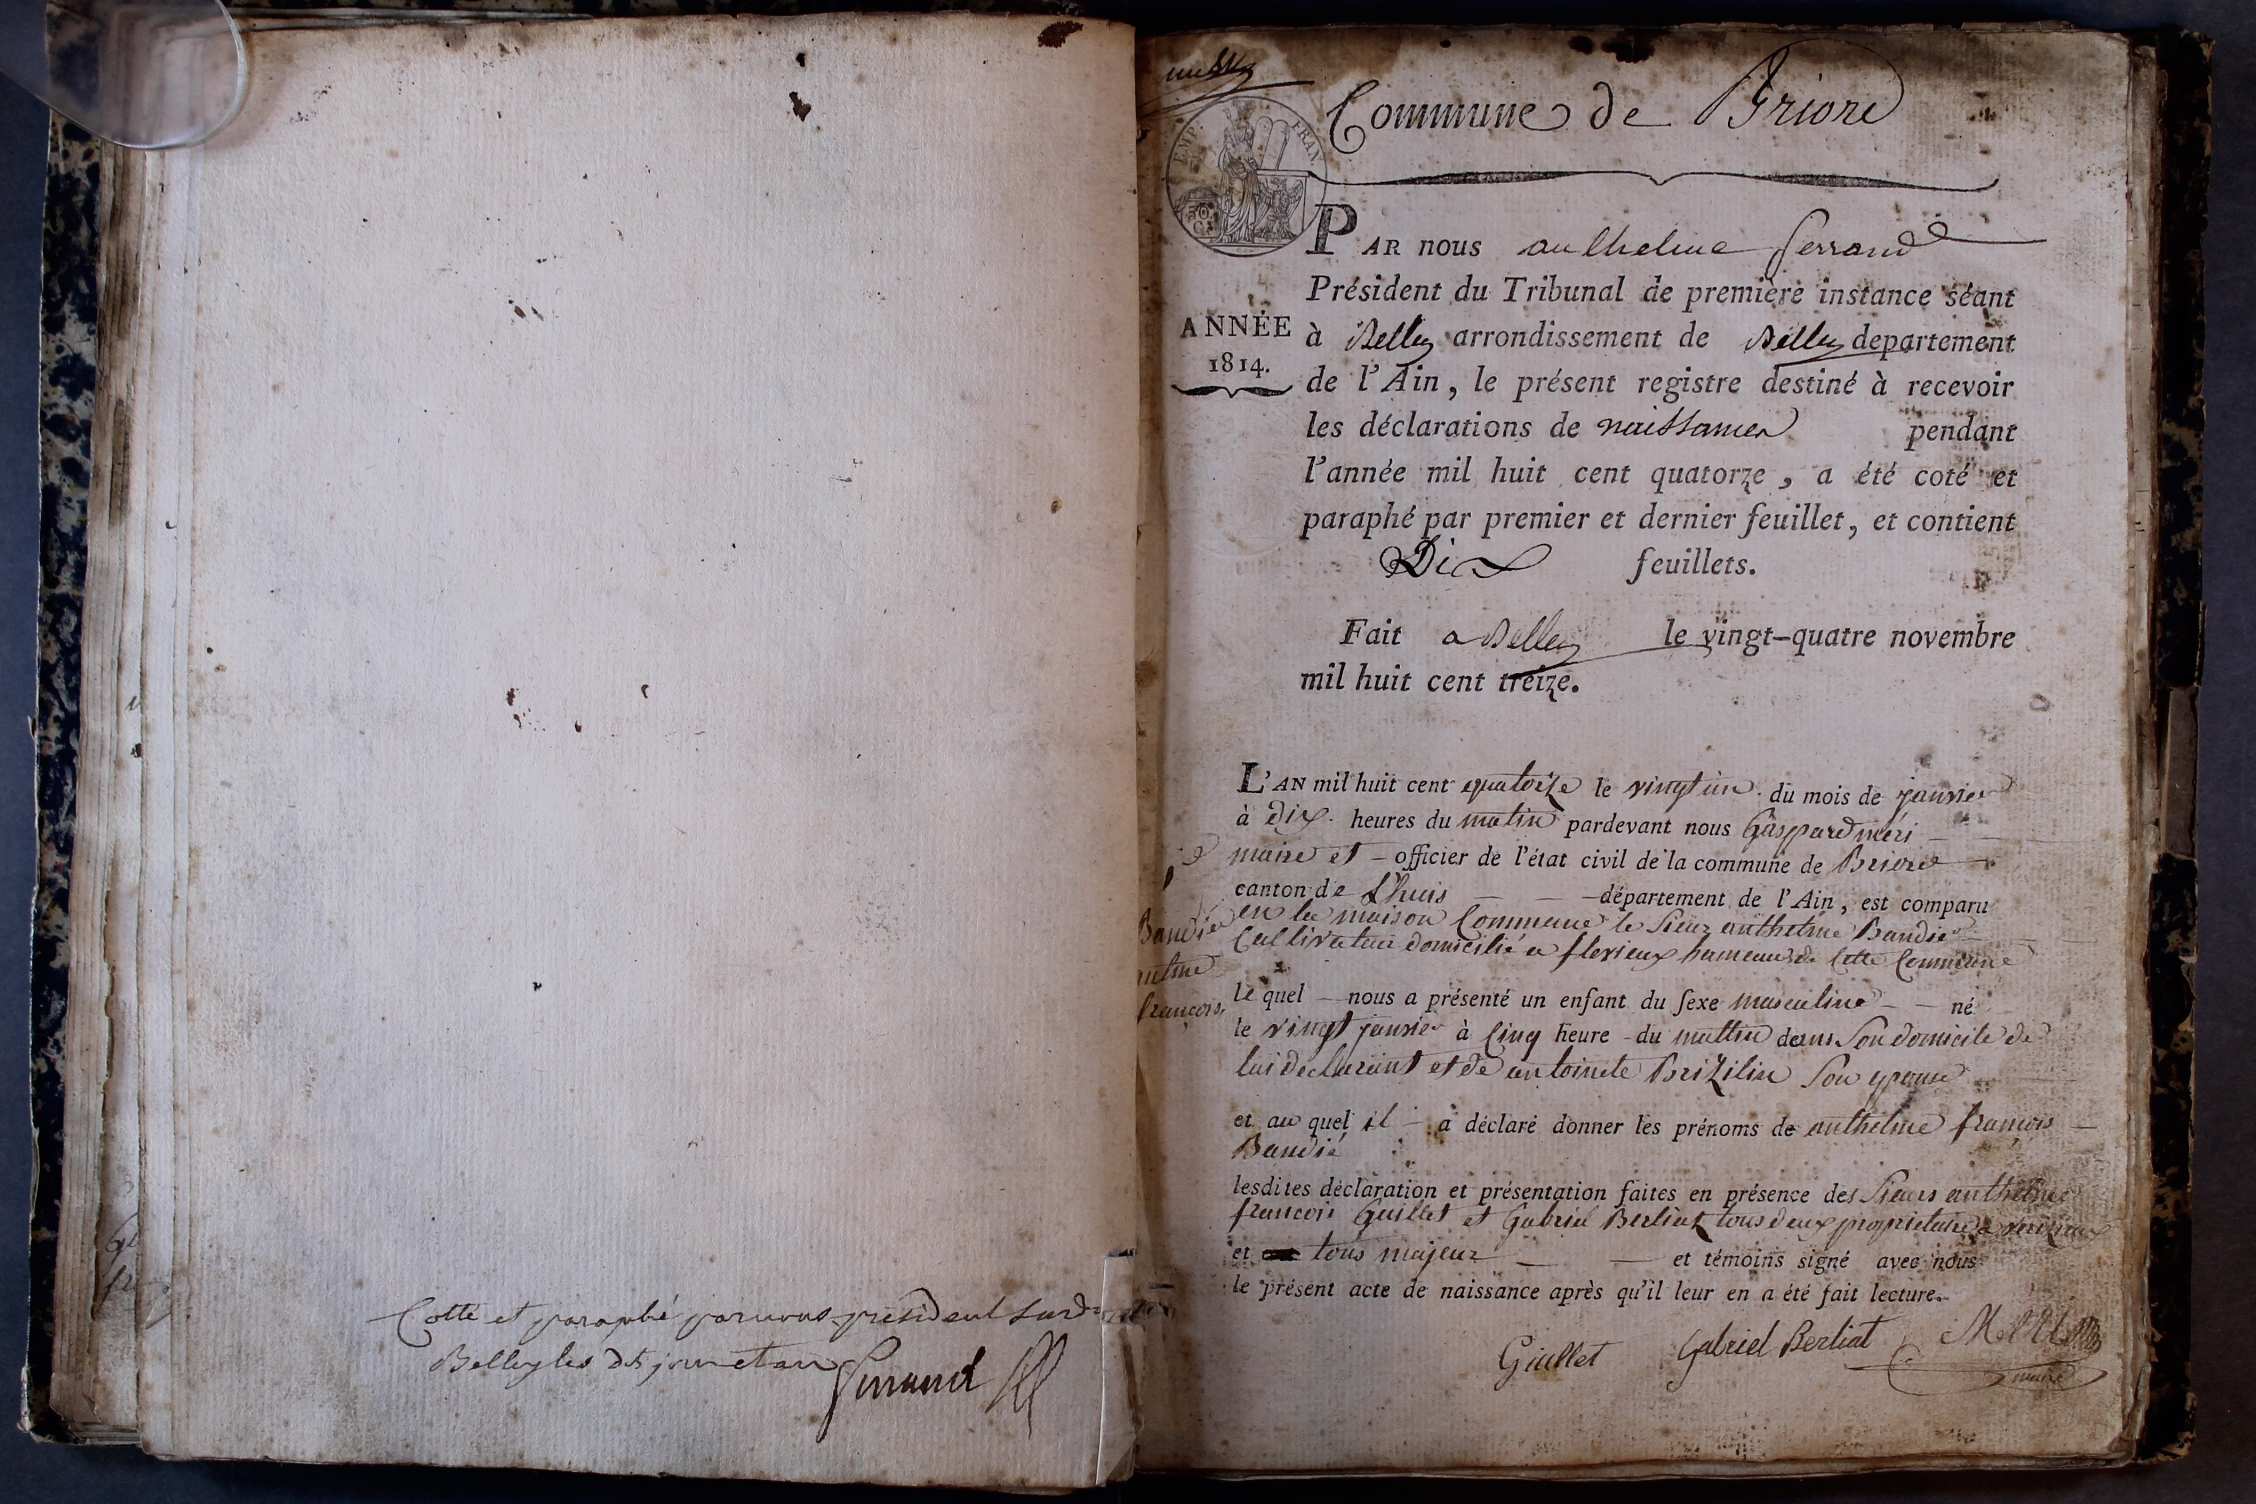 Cotté et paraphé par nous president sur
Belley les dt jour et an
Ferrand
Commune de Briord
EMP. FRAN.
50 C.
PAR nous anthelme ferrand
Président du Tribunal de première instance séant
ANNÉE
1814.
à Belley arrondissement de Belley departement
de l'Ain, le présent registre destiné à recevoir
les déclarations de naissances pendant
l'année mil huit cent quatorze, a été coté et
paraphé par premier et dernier feuillet, et contient
Dix feuillets.
Fait a Belley le vingt-quatre novembre
mil huit cent treize.
Baudié
anthelme
françois
L'AN mil huit cent quatorze le vingt un du mois de janvier
à dix heures du matin pardevant nous Gaspard meri
maire et officier de l'état civil de la commune de Briord
canton de L'huis département de l'Ain, est comparu
en la maison Commune le sieur anthelme Baudié
Cultivateur domicilié a flevieux hameau de cette Commune
lequel nous a présenté un enfant du sexe masculine né
le vingt janvier à cinq heure du mattin dans son domicile de
lui declarant et de antoinete Brizilin son epouse
et au quel il a déclaré donner les prénoms de anthelme françois
Baudié
lesdites déclaration et présentation faites en présence des sieurs anthelme
francois Guillet et Gabriel Berliat tous deux proprietaire a
et tous majeur et témoins signé avec nous
le présent acte de naissance après qu'il leur en a été fait lecture.
Giullet Gabriel Berliat Meri
maire